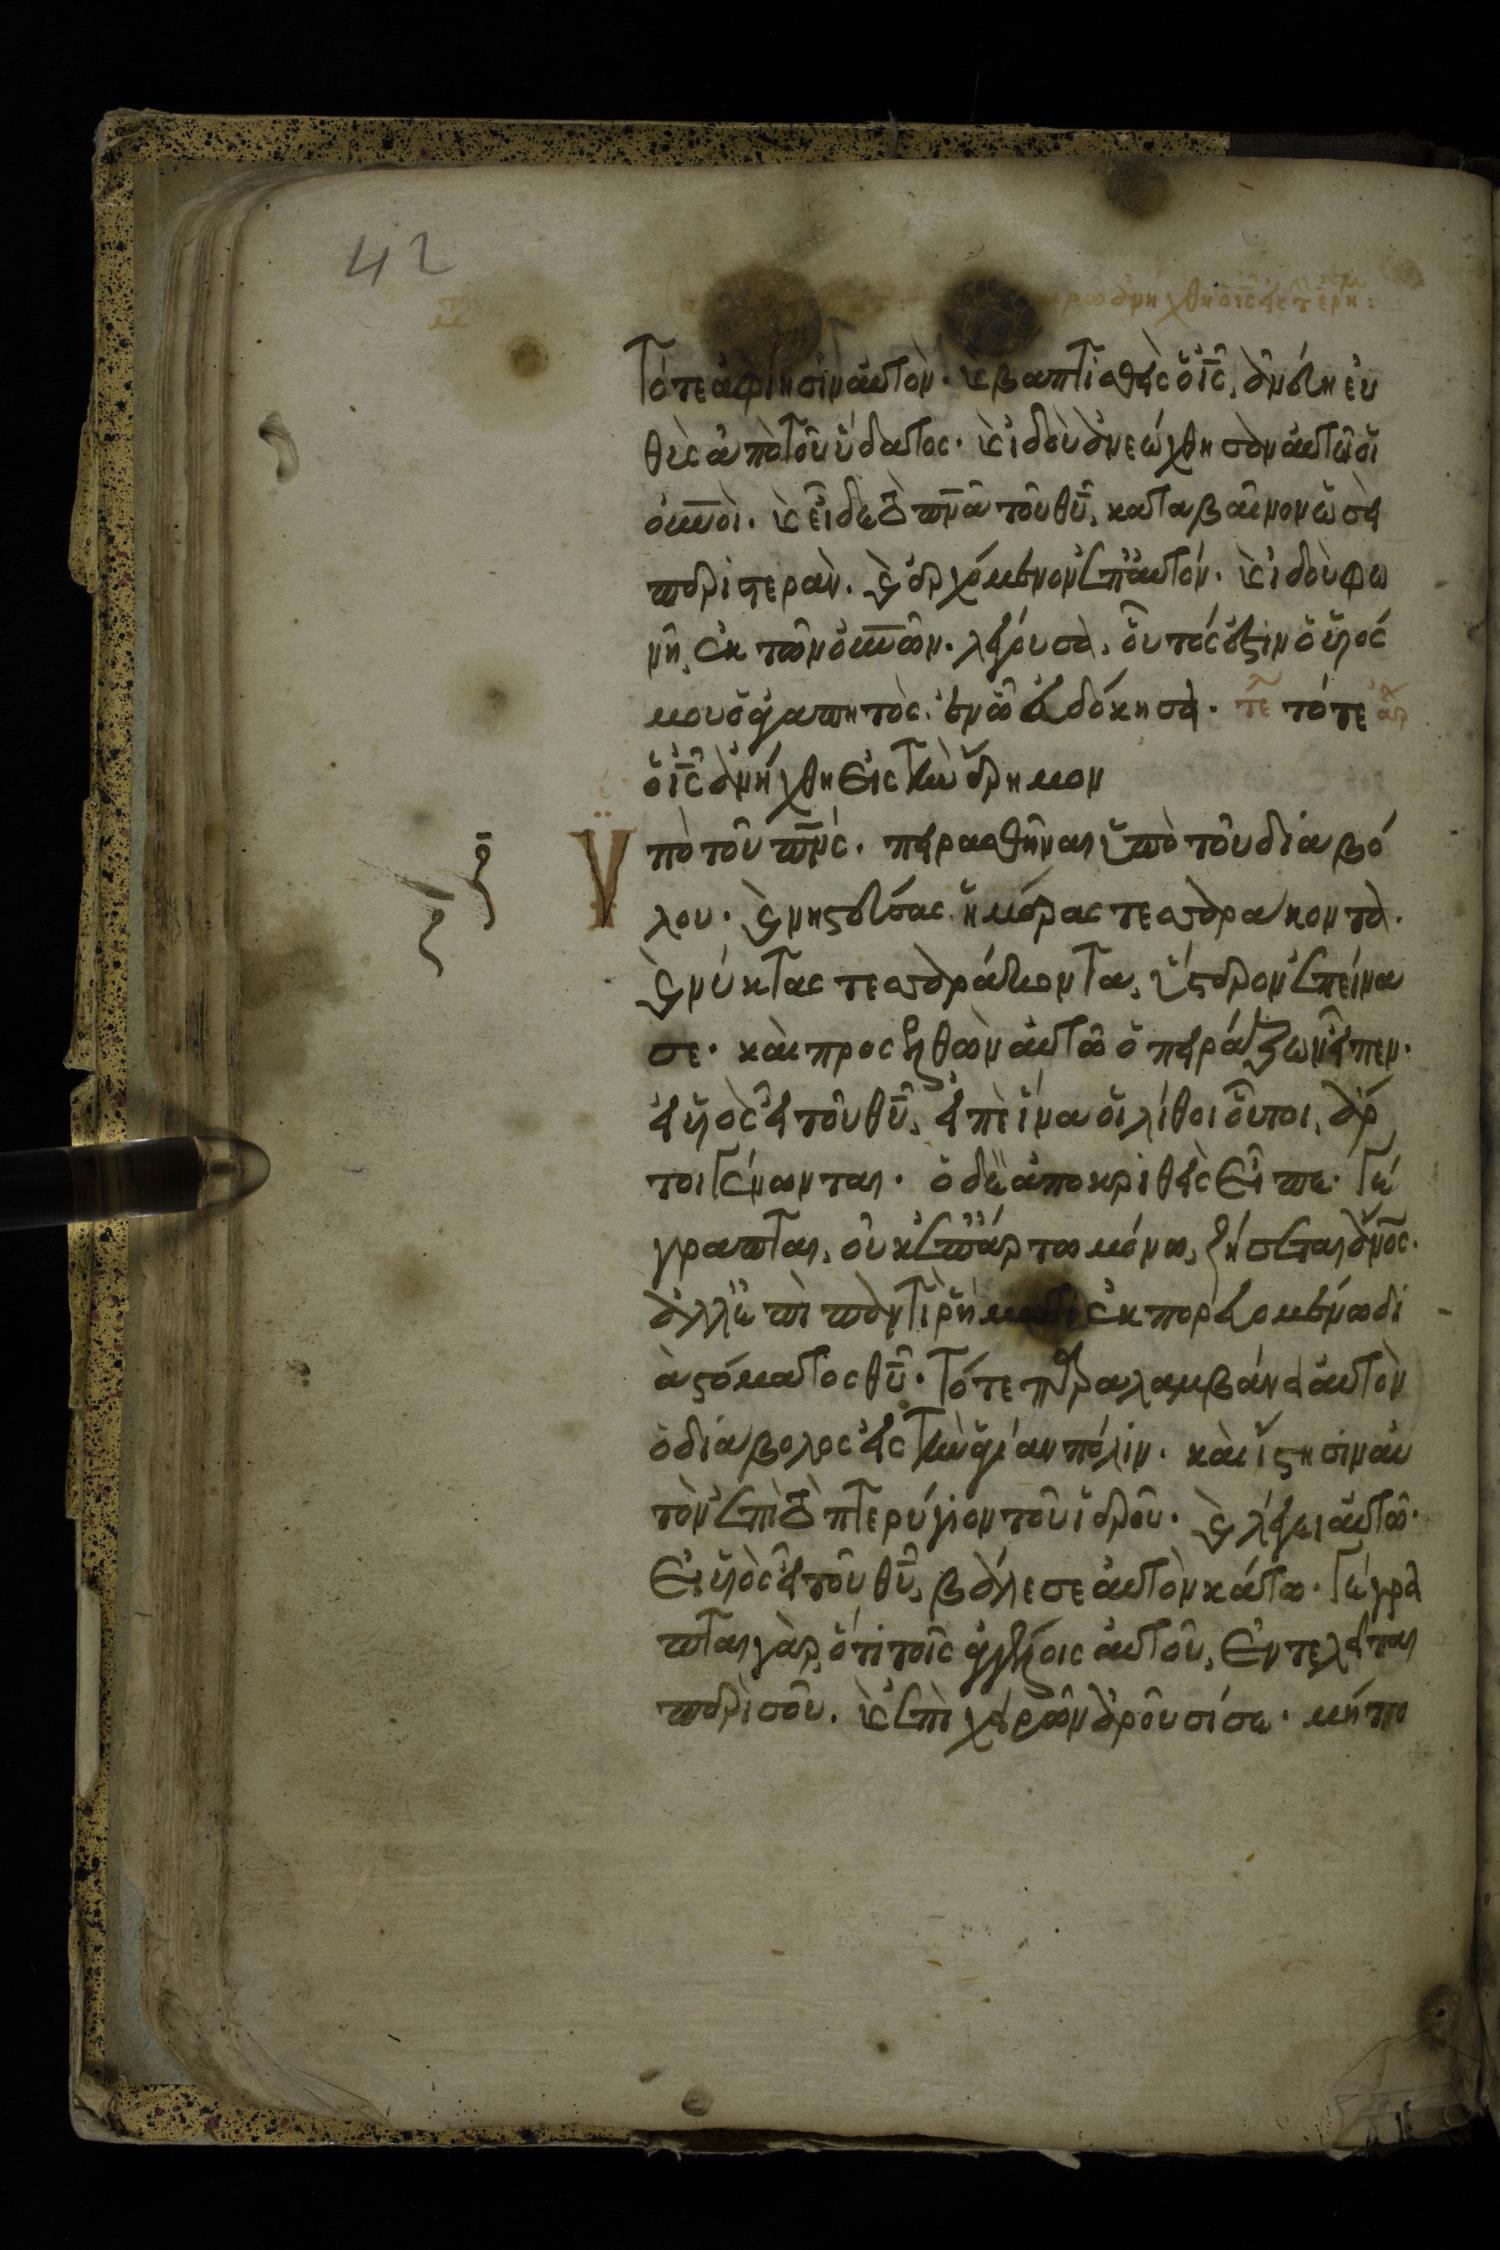 42
ἀνήχθη ὁ ις εἰς τ ερη:
Τότε ἀφίησιν αὐτὸν· κ βαπτισθεὶς ὁ ις, ἀνέβη εὐ
θὺς ἀπὸ τοῦ ὕδατος· κ ἰδοὺ ἀνεώχθησαν αὐτῶ οἱ
ουνοὶ. κ εἶδε τὸ πνα τοῦ θυ, καταβαῖνον ὡσεὶ
περιστερὰν. κ ἐρχόμενον ἐπ' αὐτόν. κ ἰδοὺ φω
νὴ, ἐκ τῶν ουνων. λέγουσα, οὗτός ἐστιν ὁ υἱός
μου ὁ ἀγαπητὸς, ἐν ὧ εὐδόκησα. τε τότε αρχ
ὁ ις ἀνήχθη εἰς τὴν ἔρημον
Ὑπὸ τοῦ πνς. πειρασθῆναι ὑπὸ τοῦ διαβό
λου. κ νηστεύσας ἡμέρας τεσσαράκοντα.
κ νύκτας τεσσαράκοντα, ὕστερον ἐπείνα
σε. καὶ προσελθὼν αὐτῶ ὁ πειράζων εἶπεν.
εἰ υἱὸς εἶ τοῦ θυ, εἰπὲ ἵνα οἱ λίθοι οὗτοι, ἄρ
τοι γένωνται. ὁ δὲ ἀποκριθεὶς εἶπε. γέ
γραπται, οὐκ ἐπ' ἄρτω μόνω, ζήσεται ανος.
ἀλλ' ἐπὶ παντὶ ῥήματι ἐκπορευομένω δι
ὰ στόματος θυ. Τότε παραλαμβάνει αὐτὸν
ὁ διάβολος εἰς τὴν ἁγίαν πόλιν. καὶ ἵστησιν αὐ
τὸν ἐπὶ τὸ πτερύγιον τοῦ ἱεροῦ. κ λέγει αὐτῶ.
Εἰ υἱὸς εἶ τοῦ θυ, βάλε σεαυτὸν κάτω. γέγρα
πται γὰρ, ὅτι τοῖς ἀγγέλοις αὐτοῦ, ἐντελεῖται
περὶ σοῦ. κ ἐπὶ χειρῶν ἀροῦσί σε. μήπο